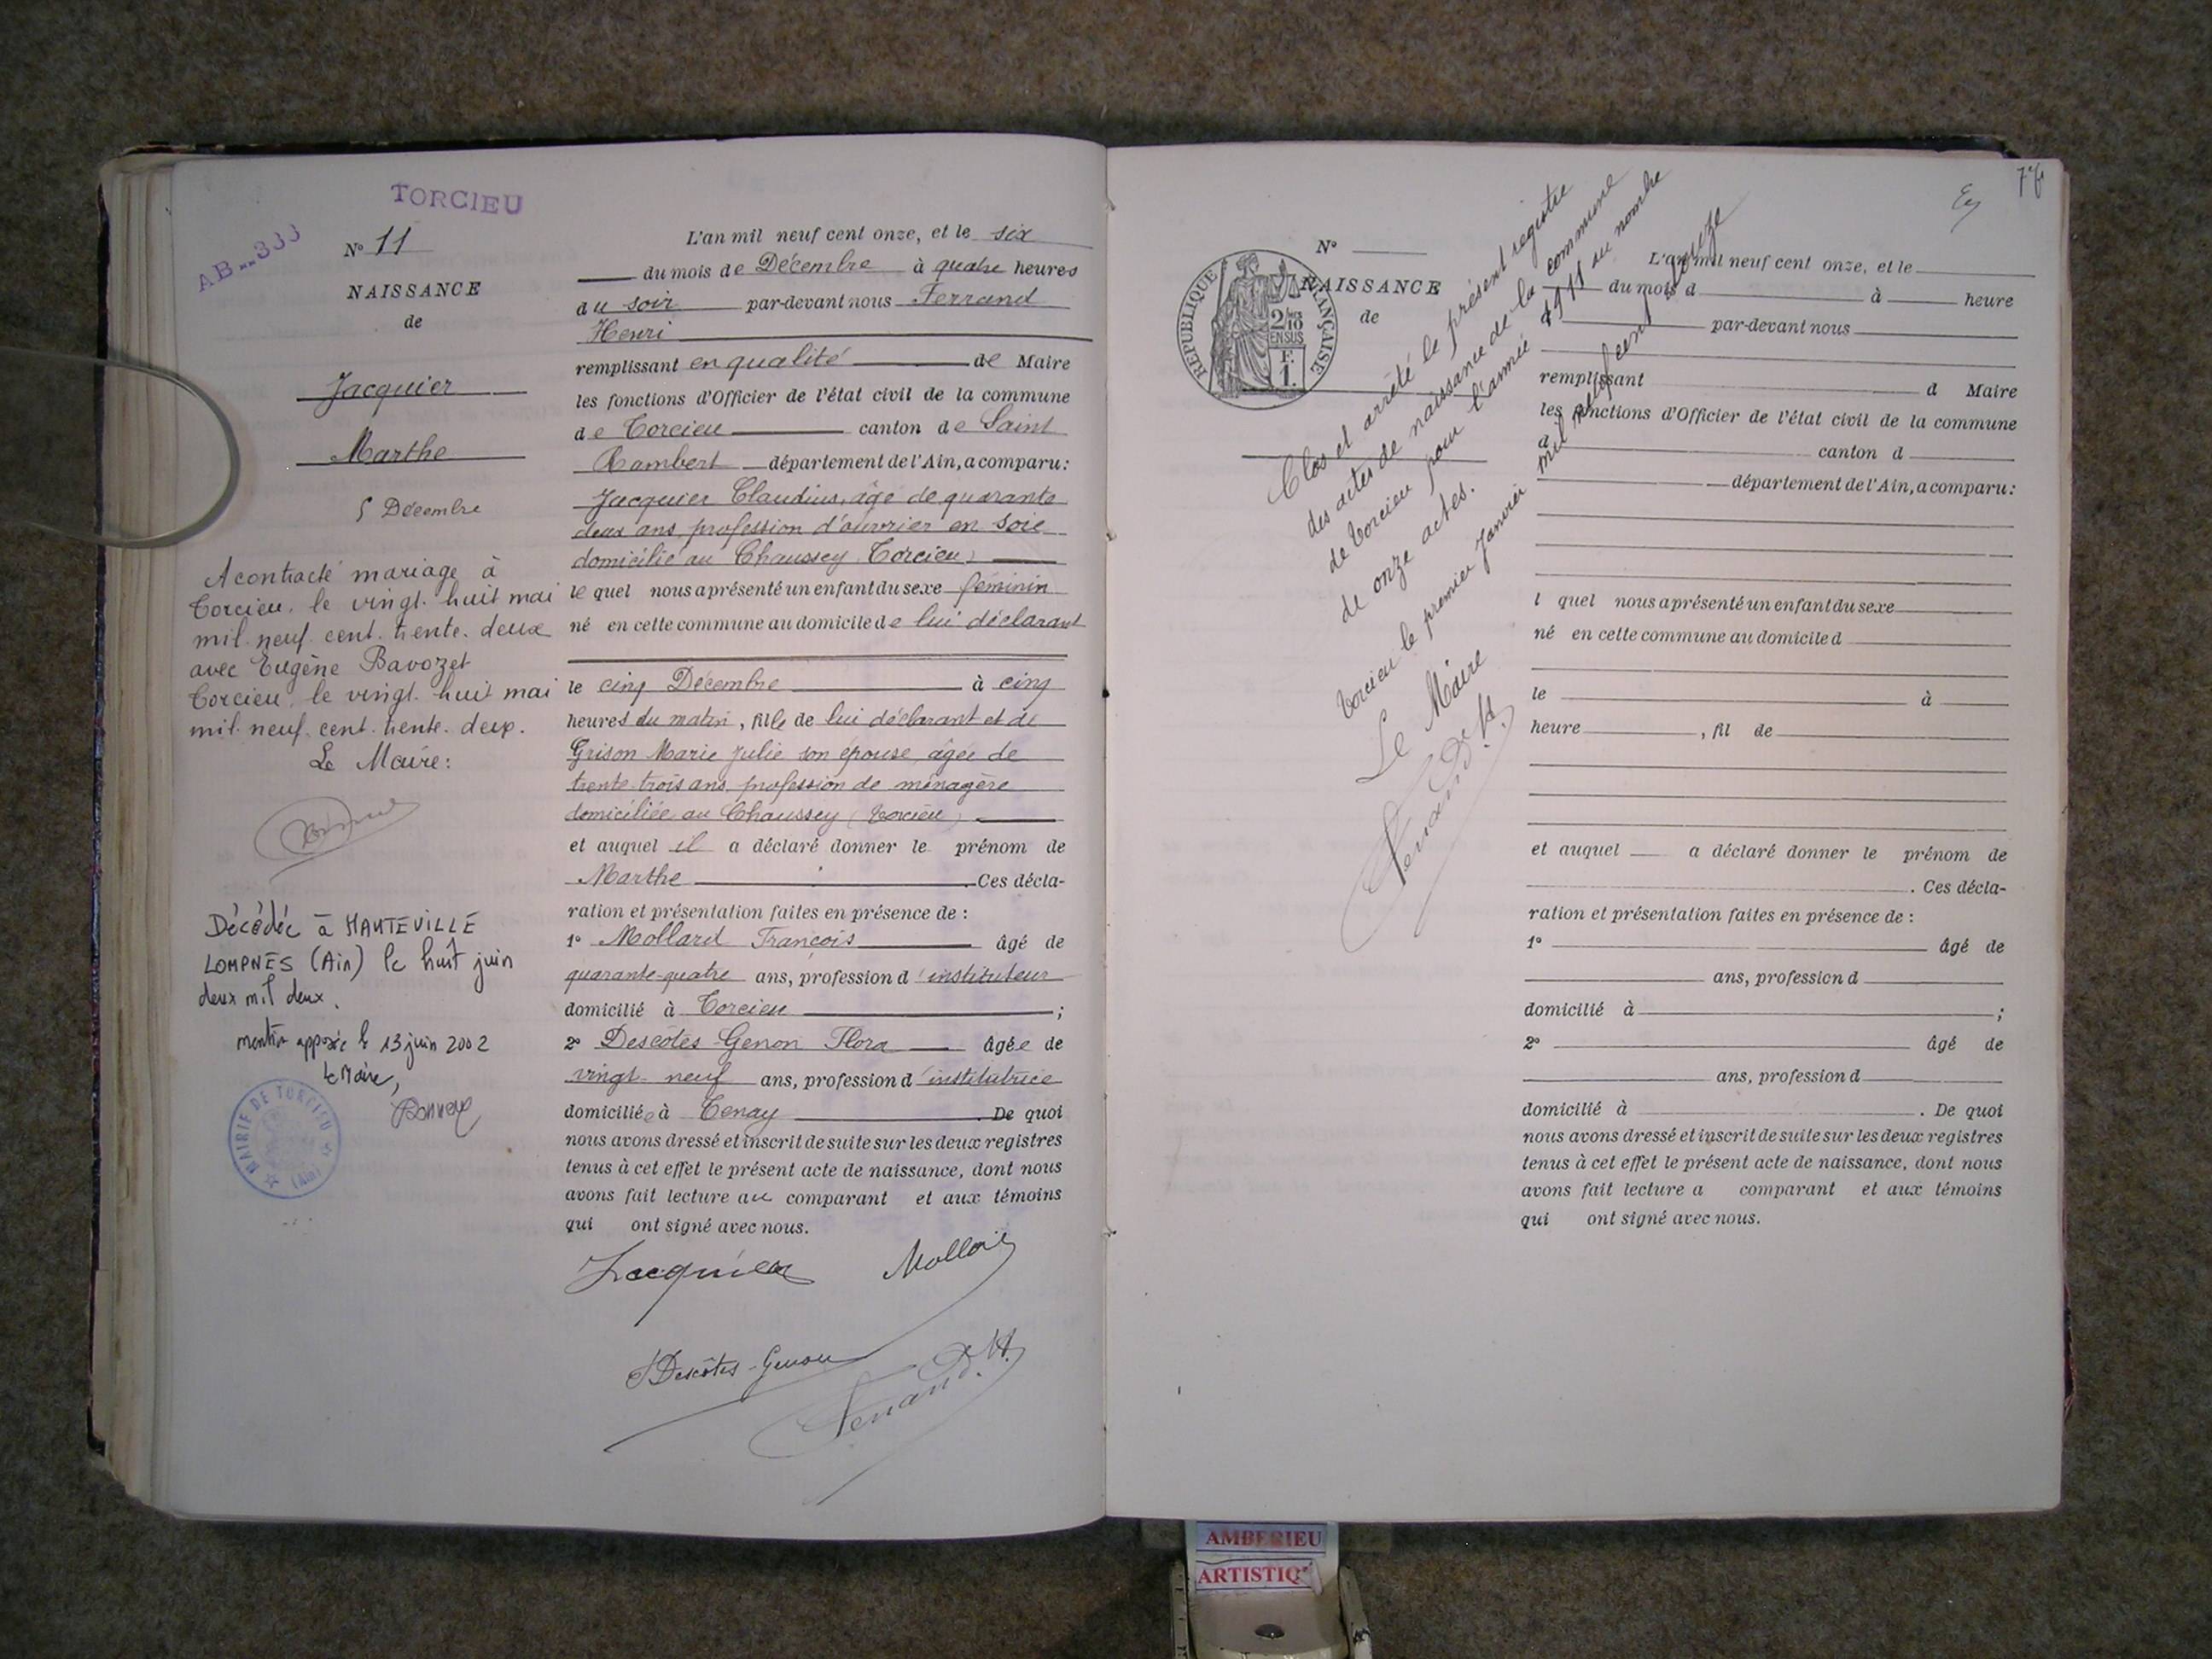 TORCIEU
AB 333
N° 11
NAISSANCE
de
Jacquier
Marthe
5 Décembre
A contracté mariage à
Torcieu, le vingt. huit mai
mil. neuf. cent. trente. deux
avec Eugène Bavozet
Torcieu, le vingt. huit mai
mil. neuf. cent. trente. deux.
Le Maire:
Décédée à HAUTEVILLE
LOMPNES (Ain) le huit juin
deux mil deux.
mention apposée le 13 juin 2002
Le Maire,
MAIRIE DE TORCIEU (Ain)
L'an mil neuf cent onze, et le six
du mois de Décembre à quatre heures
du soir par-devant nous Ferrand
Henri
remplissant en qualité de Maire
les fonctions d'Officier de l'état civil de la commune
de Torcieu canton de Saint
Rambert département de l'Ain, a comparu:
Jacquier Claudius, âgé de quarante
deux ans, profession d'ouvrier en soie
domicilié au Chaussey (Torcieu)
le quel nous a présenté un enfant du sexe féminin
né en cette commune au domicile de lui déclarant
le cinq Décembre à cinq
heures du matin, fille de lui déclarant et de
Grison Marie Julie son épouse, âgée de
trente-trois ans, profession de ménagère
domiciliée au Chaussey (Torcieu)
et auquel il a déclaré donner le prénom de
Marthe. Ces décla-
ration et présentation faites en présence de :
1° Mollard François âgé de
quarante-quatre ans, profession d'instituteur
domicilié à Torcieu ;
2° Descôtes-Genon Flora âgée de
vingt-neuf ans, profession d'institutrice
domiciliée à Tenay. De quoi
nous avons dressé et inscrit de suite sur les deux registres
tenus à cet effet le présent acte de naissance, dont nous
avons fait lecture au comparant et aux témoins
qui ont signé avec nous.
Jacquier Mollard
Descôtes-Genon
Ferrand H.
76
N°
NAISSANCE
de
RÉPUBLIQUE FRANÇAISE
2/10
EN SUS
F.
1.
Clos et arrêté le présent registre
des actes de naissance de la commune
de Torcieu pour l'année 1911 au nombre
de onze actes.
Torcieu le premier Janvier mil neuf cent douze
Le Maire
Ferrand H.
L'an mil neuf cent onze, et le
du mois d à heure
d par-devant nous
remplissant d Maire
les fonctions d'Officier de l'état civil de la commune
d canton d
département de l'Ain, a comparu:
l quel nous a présenté un enfant du sexe
né en cette commune au domicile d
le à
heure , fil de
et auquel a déclaré donner le prénom de
. Ces décla-
ration et présentation faites en présence de :
1° âgé de
ans, profession d
domicilié à ;
2° âgé de
ans, profession d
domicilié à . De quoi
nous avons dressé et inscrit de suite sur les deux registres
tenus à cet effet le présent acte de naissance, dont nous
avons fait lecture a comparant et aux témoins
qui ont signé avec nous.
AMBERIEU
ARTISTIQ